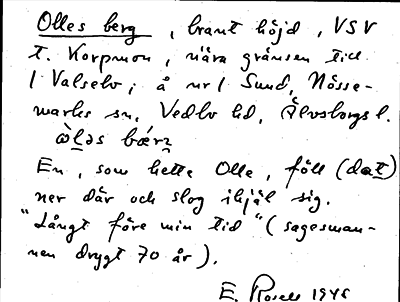 Olles berg, brant höjd, VSV
t. Korpmon, nära gränsen till
/ Valselv; å nr / Sund, Nösse-
marks sn, Vedbo hd, Älvsborgs l.
En, som hette Olle, föll (dat)
ner där och slog ihjäl sig.
"Långt före min tid" (sagesman-
nen drygt 70 år).
E. Rosell 1946